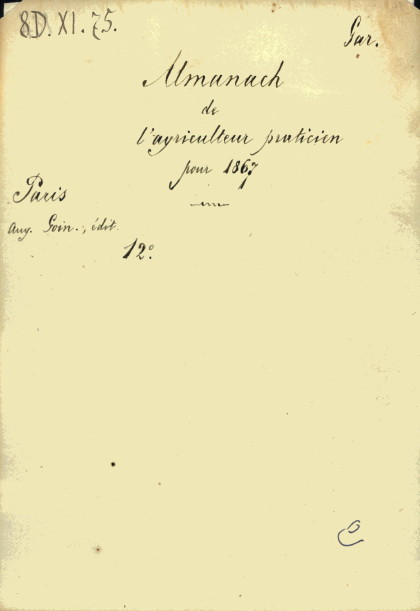 8D. XI. 75.
Gar.
Almanach
de
l'agriculteur praticien
pour 1867
Paris
Aug. Goin., édit.
12º